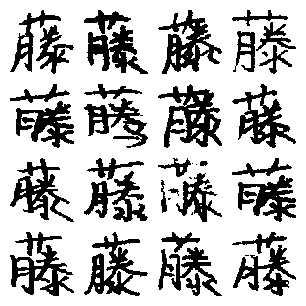 藤藤藤藤
藤藤藤藤
藤藤藤藤
藤藤藤藤